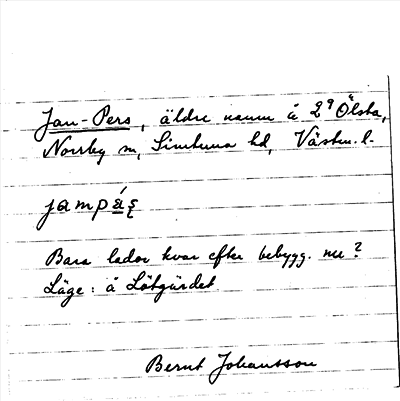 Jan-Pers, äldre namn å 2⁹ Ölsta,
Norrby sn, Simtuna hd, Västm. l.
jampá̱ʂ
Bara lador kvar efter bebygg. nu?
Läge: å Lötgärdet.
Bernt Johansson